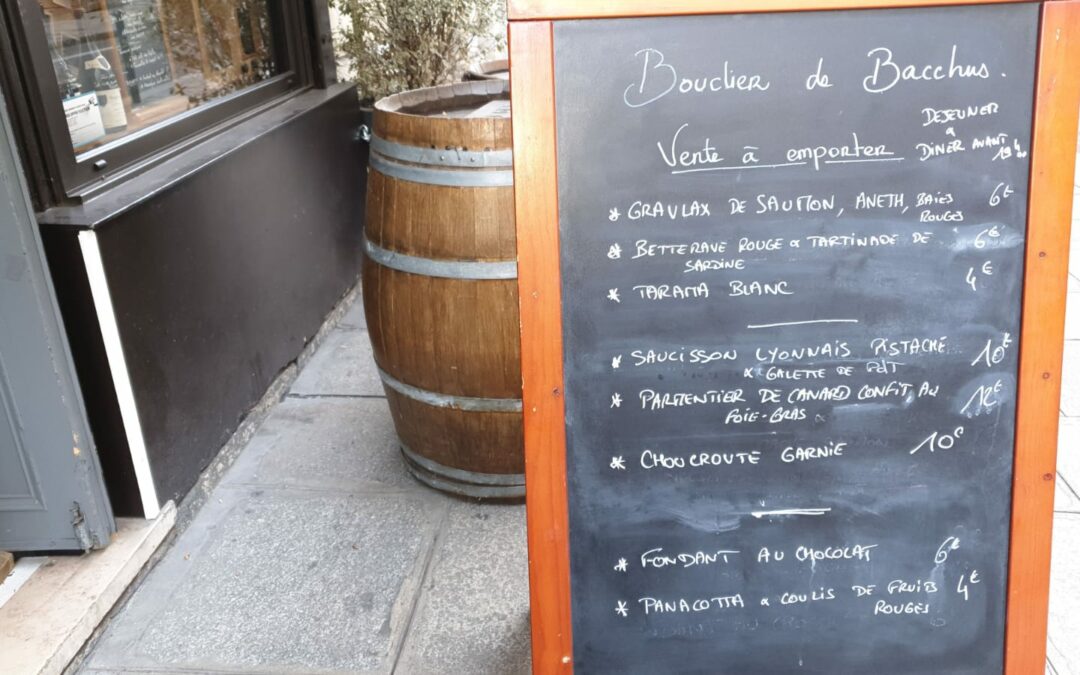 Bouclier de Bacchus.
DEJEUNER
&
Vente à emporter DINER AVANT
19h00
* GRAVLAX DE SAUMON, ANETH, BAIES 6€
ROUGES
* BETTERAVE ROUGE & TARTINADE DE 6€
SARDINE
* TARAMA BLANC 4€
* SAUCISSON LYONNAIS PISTACHE 10€
& GALETTE DE
* PARMENTIER DE CANARD CONFIT, AU 12€
FOIE-GRAS
* CHOUCROUTE GARNIE 10€
* FONDANT AU CHOCOLAT 6€
* PANACOTTA & COULIS DE FRUITS 4€
ROUGES